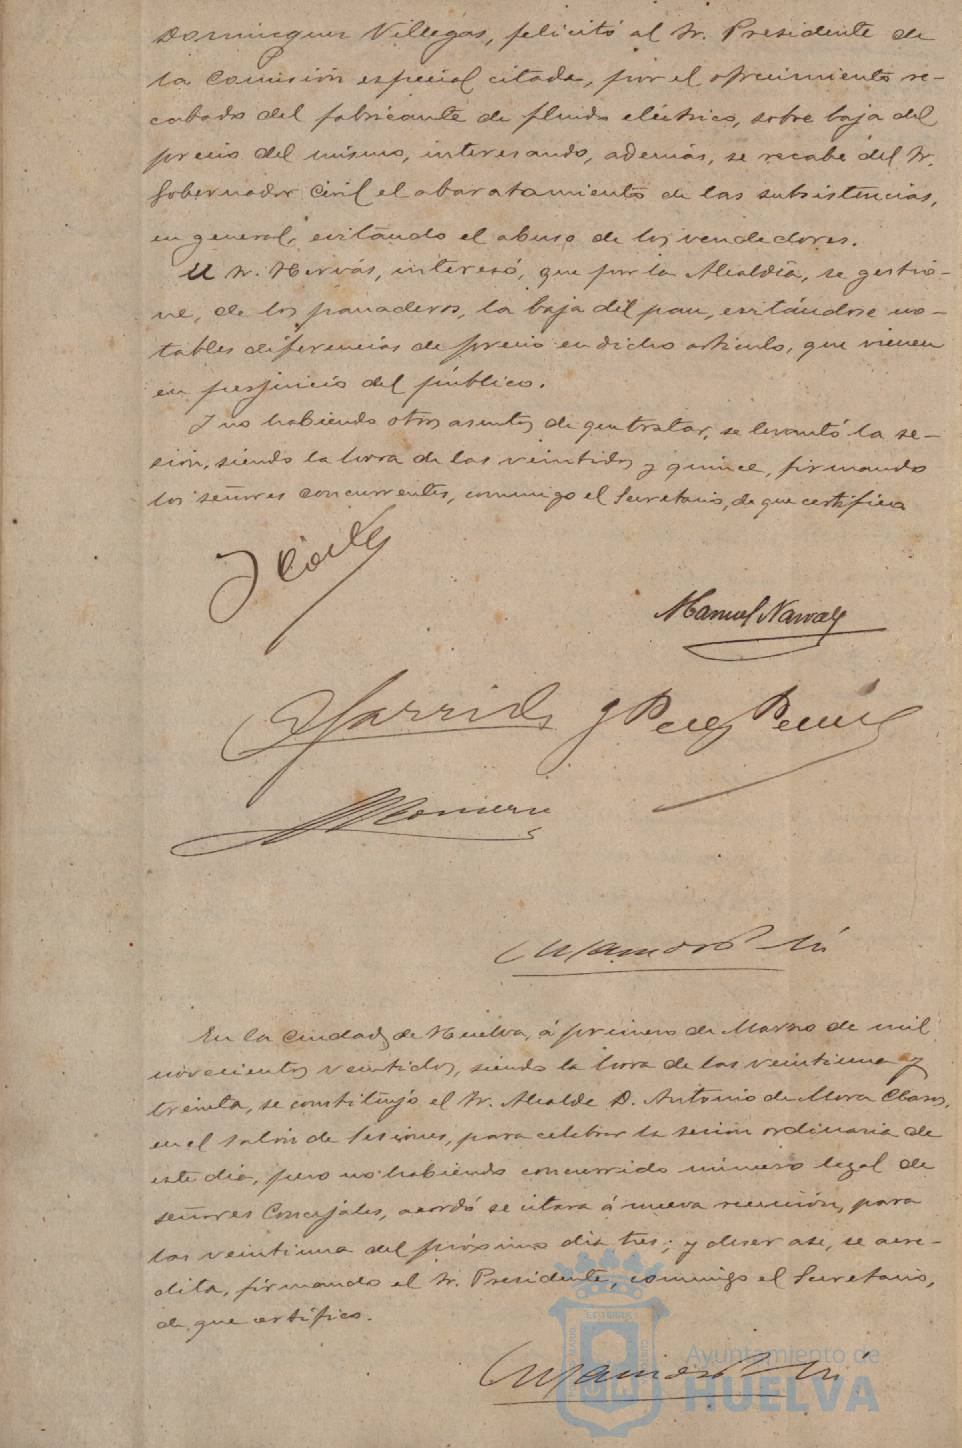 Dominguez Villegas, felicitó al Sr. Presidente de
la Comisión especial citada, por el ofrecimiento re-
cabado del fabricante de fluido eléctrico, sobre baja del
precio del mismo, interesando, además, se recabe del Sr.
Gobernador Civil el abaratamiento de las subsistencias,
en general, evitando el abuso de los vendedores.
El Sr. Hervás, interesó, que por la Alcaldía, se gestio-
ne, de los panaderos, la baja del pan, evitándose no-
tables diferencias de precio en dicho artículo, que vienen
en perjuicio del público.
Y no habiendo otros asuntos de que tratar, se levantó la se-
sión, siendo la hora de las veintidos y quince, firmando
los señores concurrentes, conmigo el Secretario, de que certifico
Manuel Narvaez
Garrido
y Perez
En la Ciudad de Huelva, á primero de Marzo de mil
novecientos veintidos, siendo la hora de las veintiuna y
treinta, se constituyó el Sr. Alcalde D. Antonio de Mora Claros,
en el Salón de Sesiones, para celebrar la sesión ordinaria de
este dia, pero no habiendo concurrido número legal de
señores Concejales, acordó se citara á nueva reunión, para
las veintiuna del próximo dia tres; y de ser asi, se acre-
dita, firmando el Sr. Presidente, conmigo el Secretario,
de que certifico.
Ayuntamiento de
HUELVA